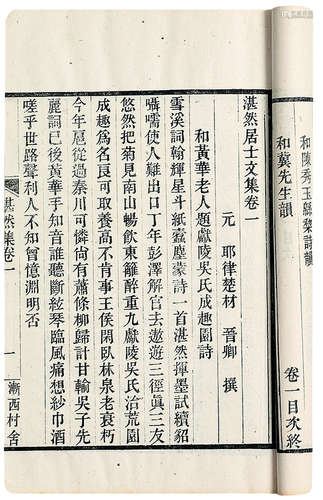 和陳秀玉緜棃詩韻
和冀先生韻
卷一目次終
湛然居士文集卷一
元 耶律楚材 晉卿 撰
和黃華老人題獻陵吳氏成趣園詩
雪溪詞翰輝星斗紙蠹塵蒙詩一首湛然揮墨試續貂
囁嚅使人難出口丁年彭澤解官去遨遊三徑眞三友
悠然把菊見南山暢飲東籬醉重九獻陵吳氏治荒園
成趣爲名良可取養高不肯事王侯閑臥林泉老衰朽
今年扈從過秦川可憐尚有蕭條柳歸計甘輸吳子先
麗詞已後黃華手知音誰聽斷絃琴臨風痛想紗巾酒
嗟乎世路聲利人不知曾憶淵明否
湛然集卷一 一 漸西村舍